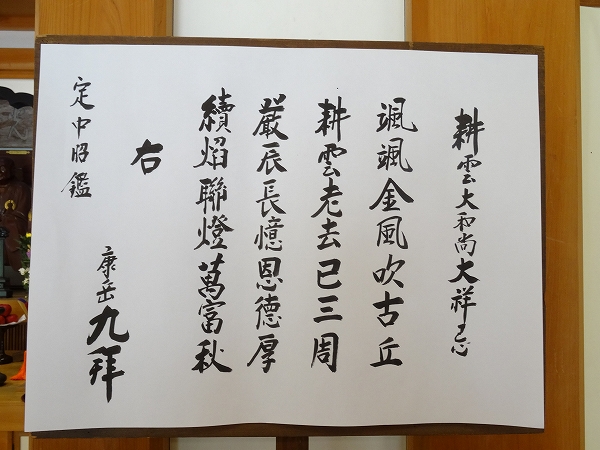 耕雲大和尚大祥忌
颯颯金風吹古丘
耕雲老去已三周
厳辰長憶恩德厚
續焰聯燈萬富秋
右
定中昭鑑
康岳九拜